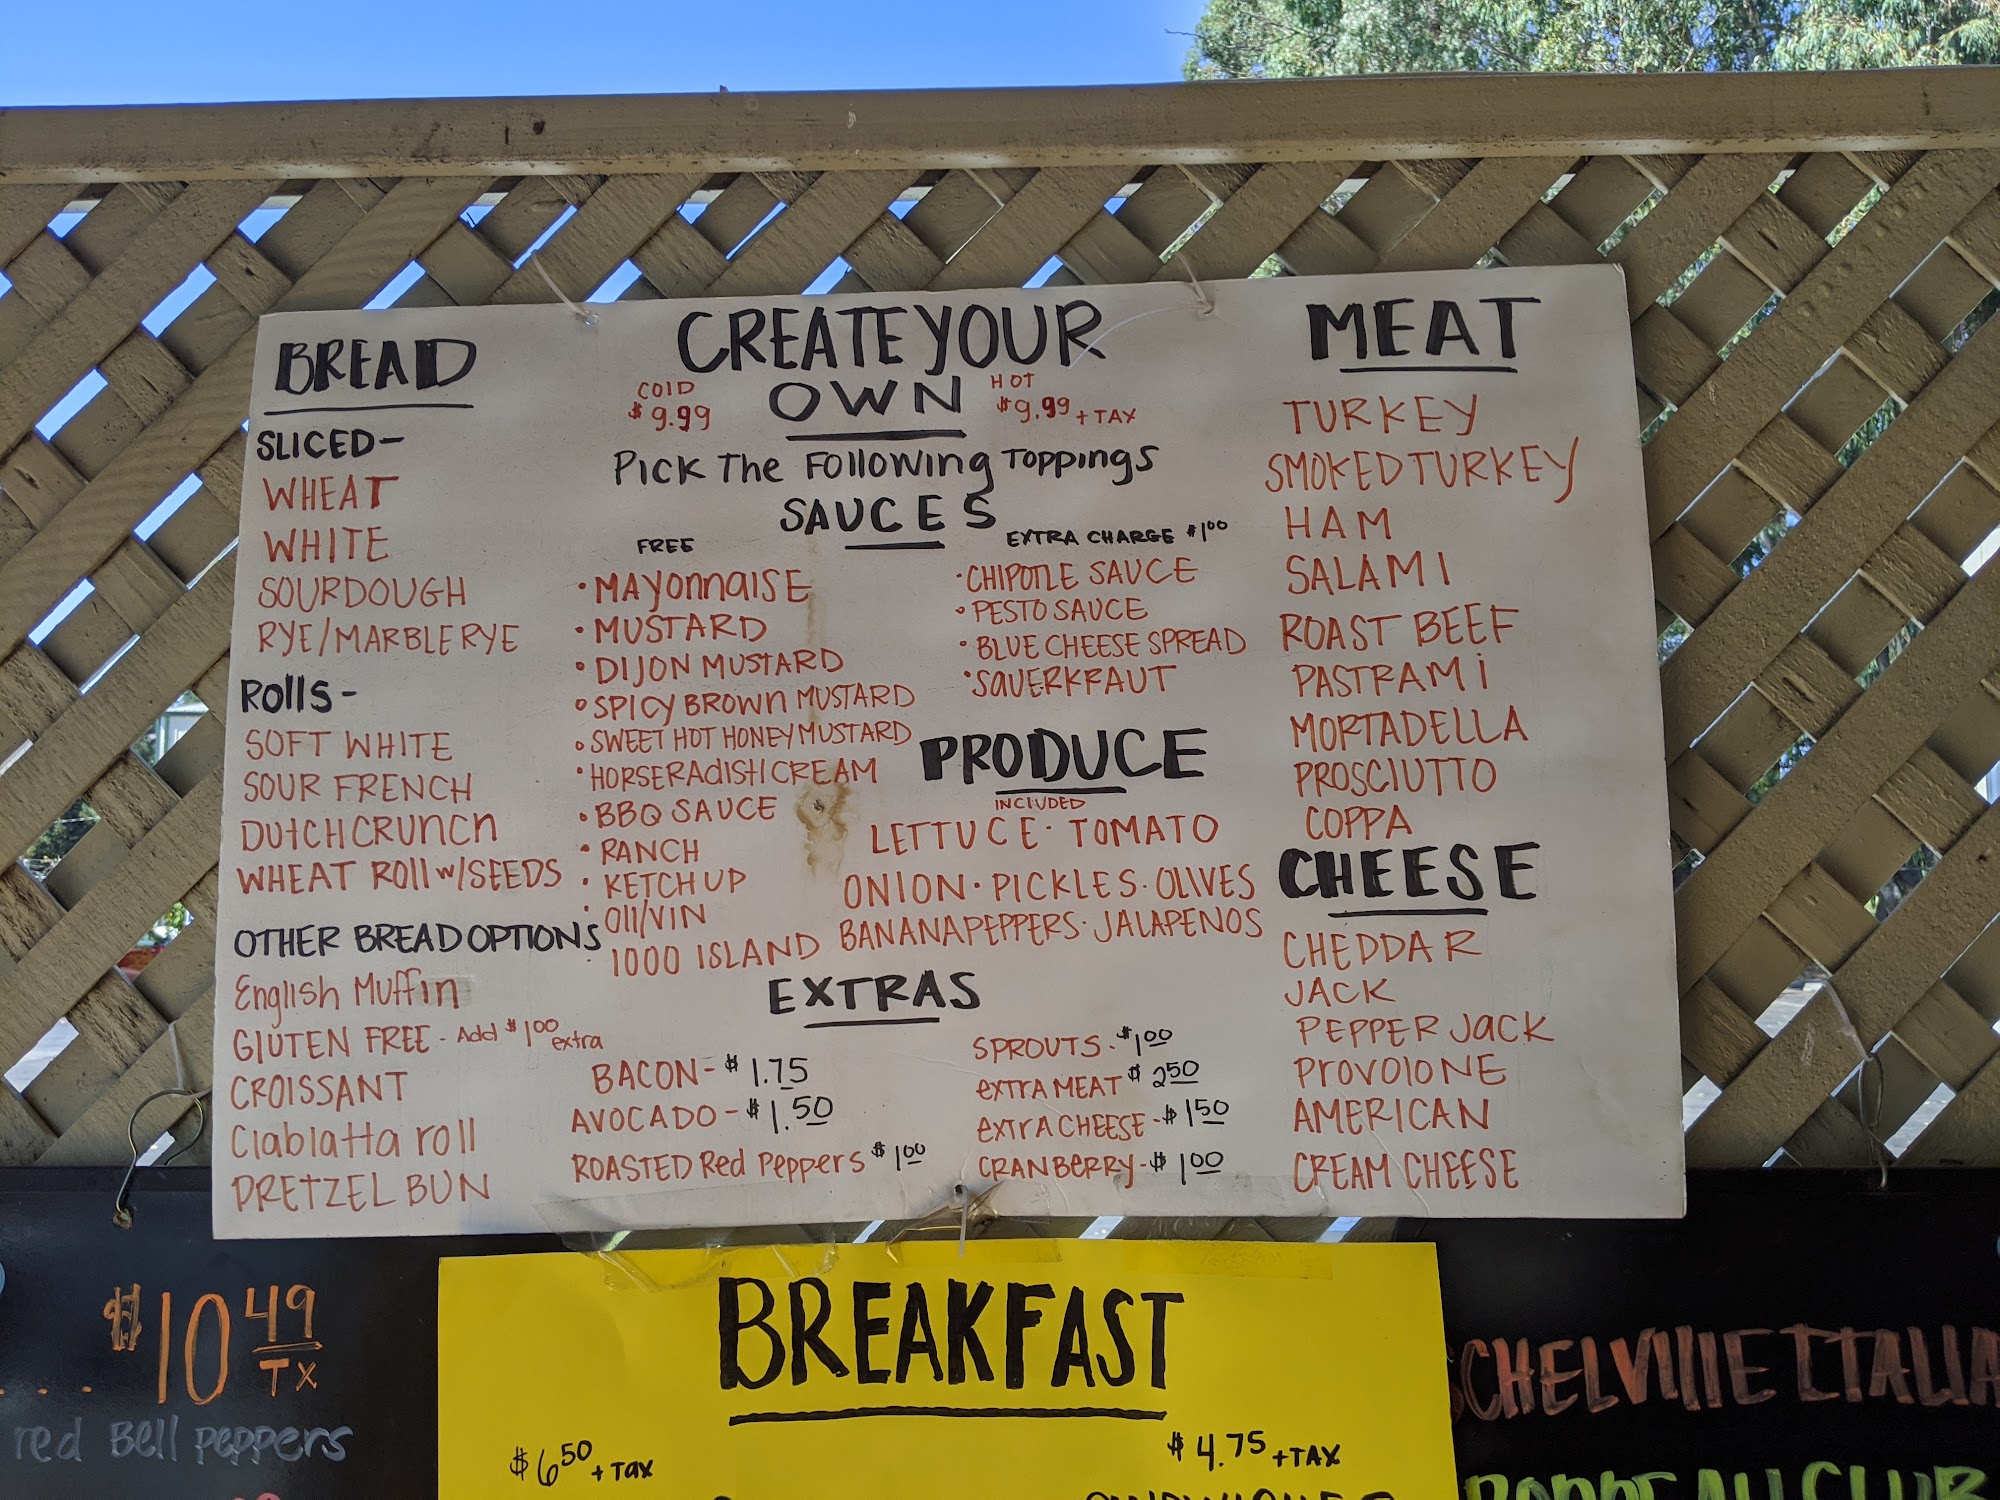 BREAD
SLICED-
WHEAT
WHITE
SOURDOUGH
RYE/MARBLE RYE
ROllS-
SOFT WHITE
SOUR FRENCH
DUtCH CRUNCH
WHEAT ROll w/SEEDS
OTHER BREAD OPTIONS
English Muffin
GlUTEN FREE - Add $1.00 extra
CROISSANT
Ciablatta roll
PRETZEL BUN
CREATE YOUR
OWN
COlD
$9.99
HOT
$9.99 + TAX
PiCK THe FOllOWiNg TOPPiNgS
SAUCES
FREE
• MAYonnaiSE
• MUSTARD
• DIJON MUSTARD
• SPICY BROWN MUSTARD
• SWEET HOT HONEY MUSTARD
• HORSERAdiSH CREAM
• BBQ SAUCE
• RANCH
• KETCHUP
• OIl/VIN
1000 ISLAND
EXTRA CHARGE $1.00
• CHIPOTLE SAUCE
• PESTO SAUCE
• BLUE CHEESE SPREAD
• SaUERKRAUT
PRODUCE
INCLUDED
LETTUCE · TOMATO
ONION · PICKLES · OLIVES
BANANA PEPPERS · JALAPENOS
EXTRAS
BACON - $1.75
AVOCADO - $1.50
ROASTED Red PePPeRS $1.00
SPROUTS - $1.00
eXTRA MEAT $2.50
eXTrA CHEESE - $1.50
CRANBeRRY - $1.00
MEAT
TURKEY
SMOKED TURKEY
HAM
SALAMI
ROAST BEEF
PASTRAMi
MORTADELLA
PROSCIUTTO
COPPA
CHEESE
CHEDDAR
JACK
PEPPER JaCK
PrOVOlONE
AMERICAN
CREAM CHEESE
$10.49
TX
red Bell peppers
BREAKFAST
$6.50 + Tax
$4.75 + TAX
SCHELVIllE ITALIA